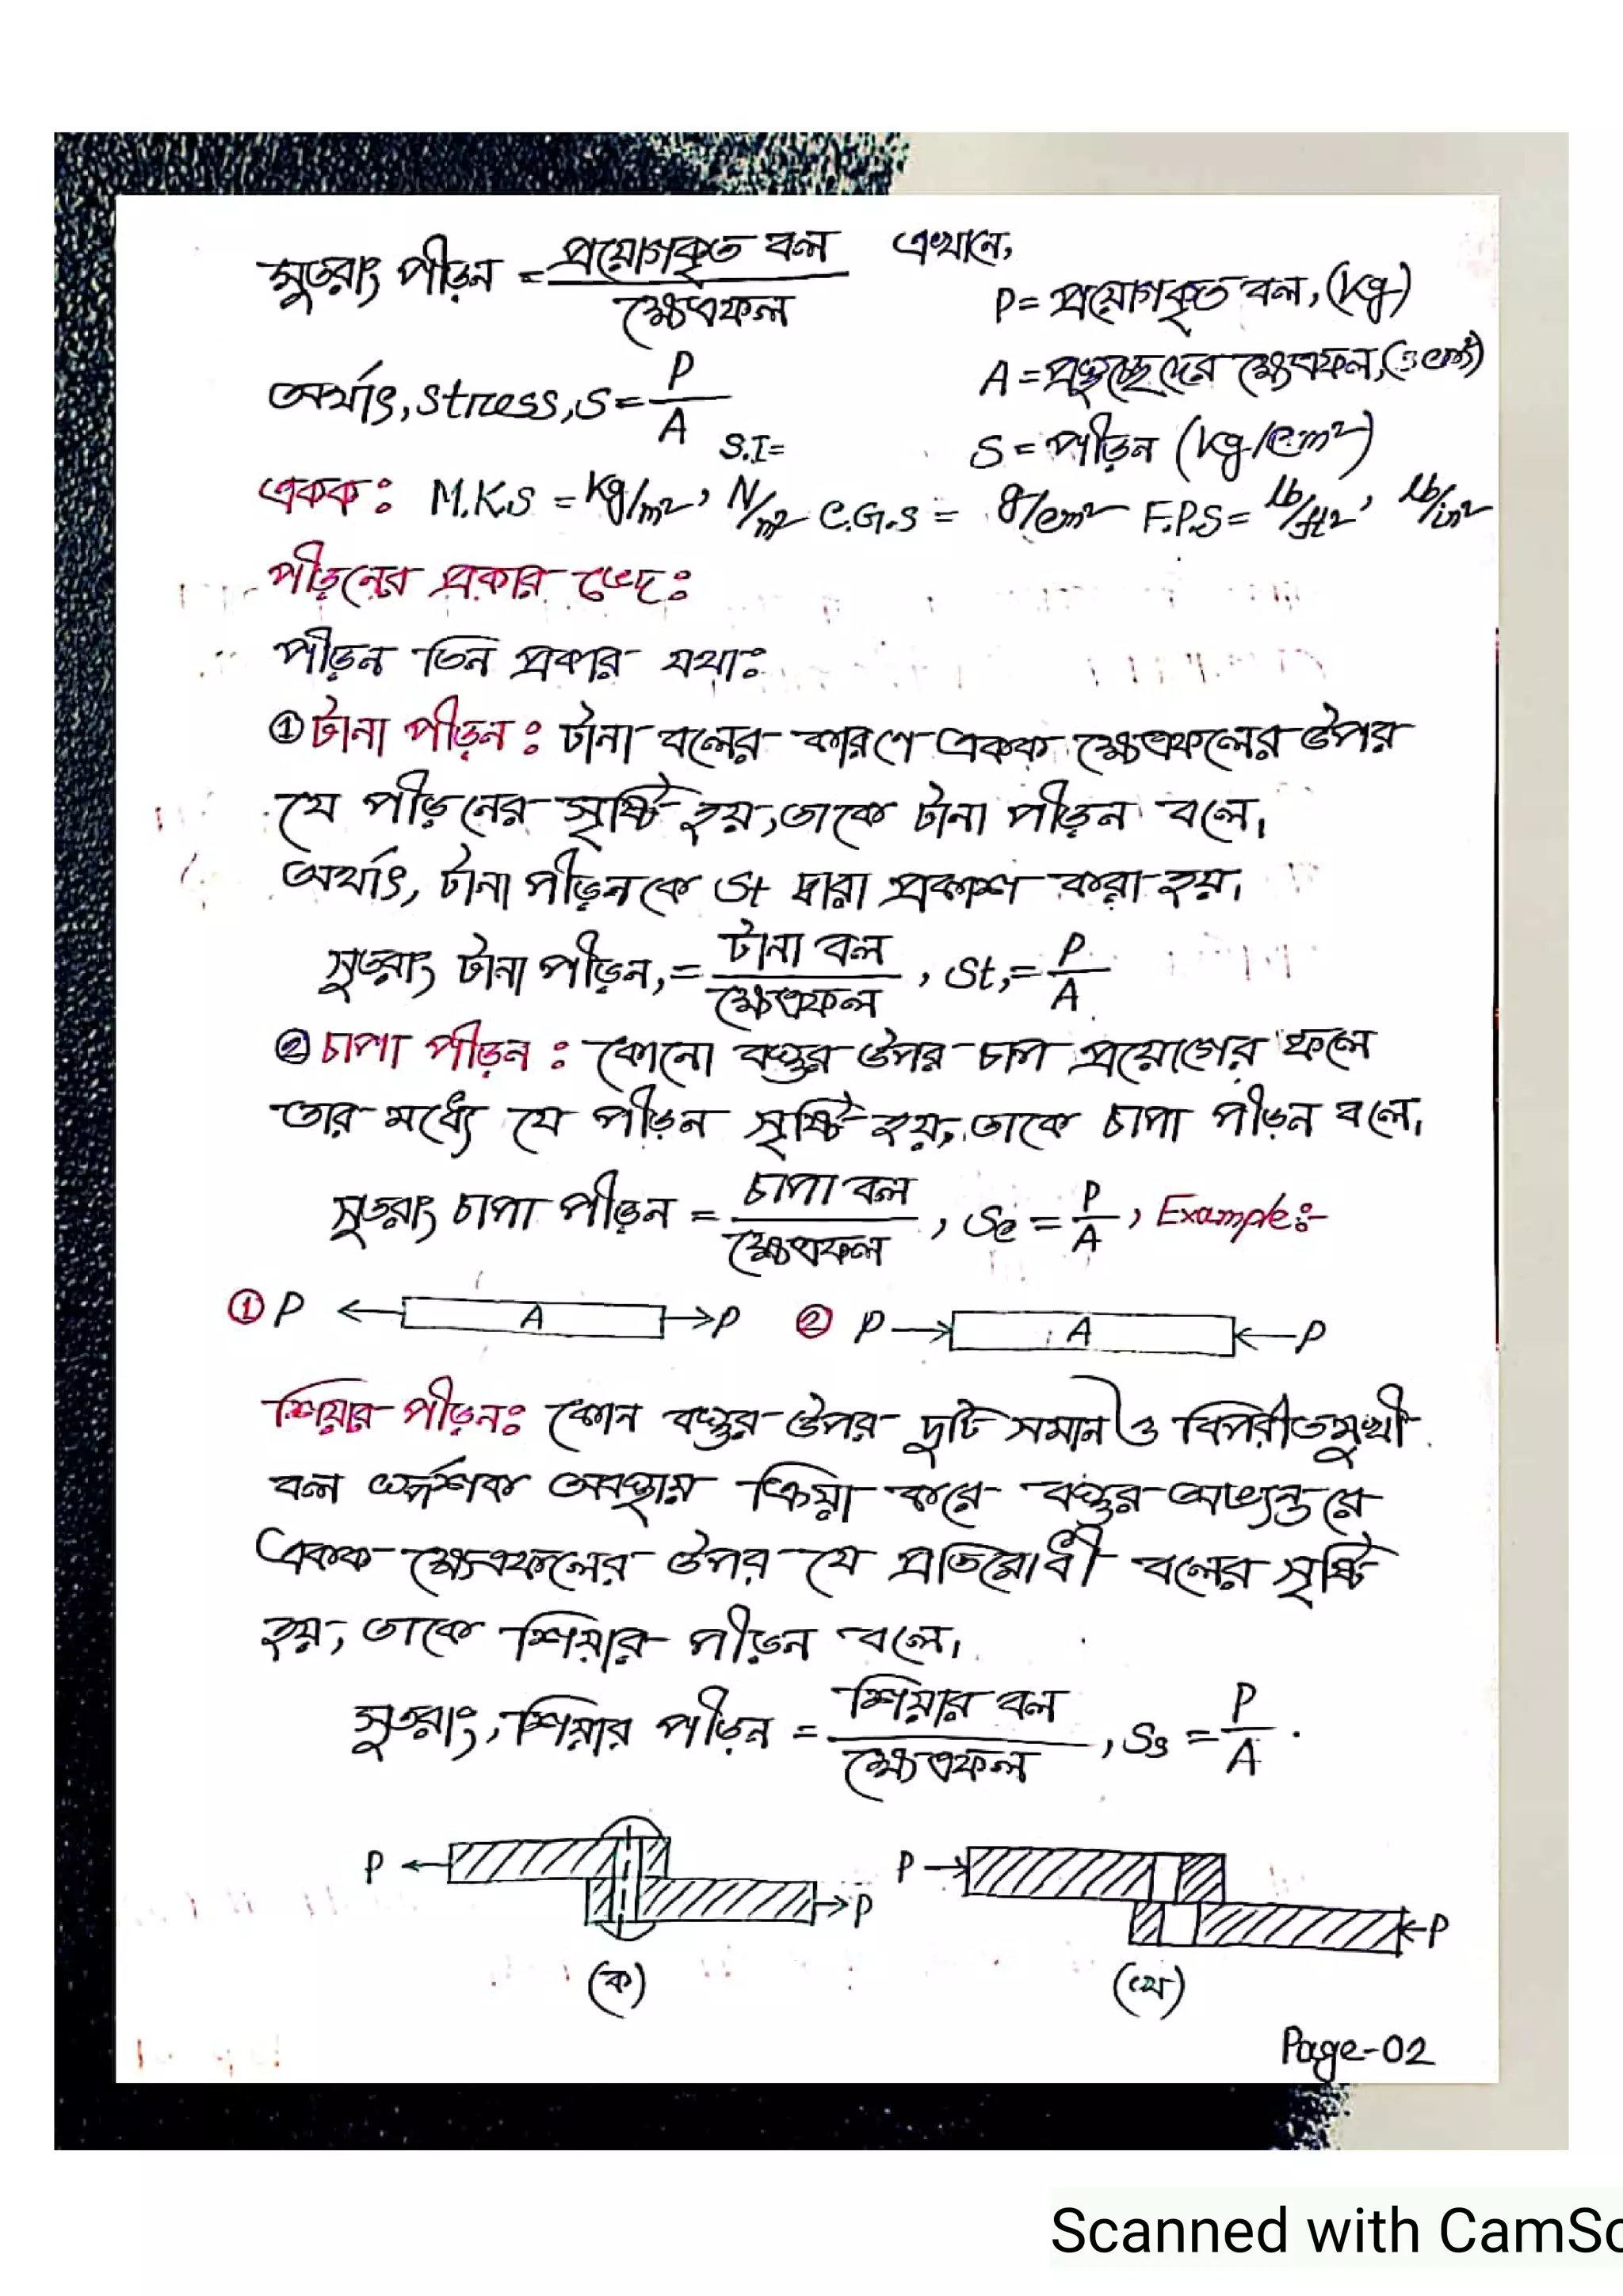 সুতরাং পীড়ন = প্রয়োগকৃত বল / ক্ষেত্রফল এখানে,
P = প্রয়োগকৃত বল, (Kg)
অর্থাৎ, Stress, S = P / A
A = প্রস্থচ্ছেদের ক্ষেত্রফল,
S = পীড়ন (kg/cm²)
S.I=
একক : M.K.S = Kg/m², N/m² C.G.S = g/cm² F.P.S = lb/ft², lb/in²
পীড়নের প্রকার ভেদ :
পীড়ন তিন প্রকার যথা :
① টানা পীড়ন : টানা বলের কারণে একক ক্ষেত্রফলের উপর
যে পীড়নের সৃষ্টি হয়, তাকে টানা পীড়ন বলে।
অর্থাৎ, টানা পীড়নকে St দ্বারা প্রকাশ করা হয়।
সুতরাং টানা পীড়ন, = টানা বল / ক্ষেত্রফল , St, = P / A
② চাপা পীড়ন : কোনো বস্তুর উপর চাপ প্রয়োগের ফলে
তার মধ্যে যে পীড়ন সৃষ্টি হয়, তাকে চাপা পীড়ন বলে।
সুতরাং চাপা পীড়ন = চাপা বল / ক্ষেত্রফল , Sc = P / A , Example :-
① P A P ② P A P
শিয়ার পীড়ন : কোন বস্তুর উপর দুটি সমান ও বিপরীতমুখী
বল স্পর্শক অবস্থায় ক্রিয়া করে বস্তুর অভ্যন্তরে
একক ক্ষেত্রফলের উপর যে প্রতিরোধী বলের সৃষ্টি
হয়, তাকে শিয়ার পীড়ন বলে।
সুতরাং, শিয়ার পীড়ন = শিয়ার বল / ক্ষেত্রফল , Ss = P / A .
P P P P
(ক) (খ)
Page-02
Scanned with CamSc